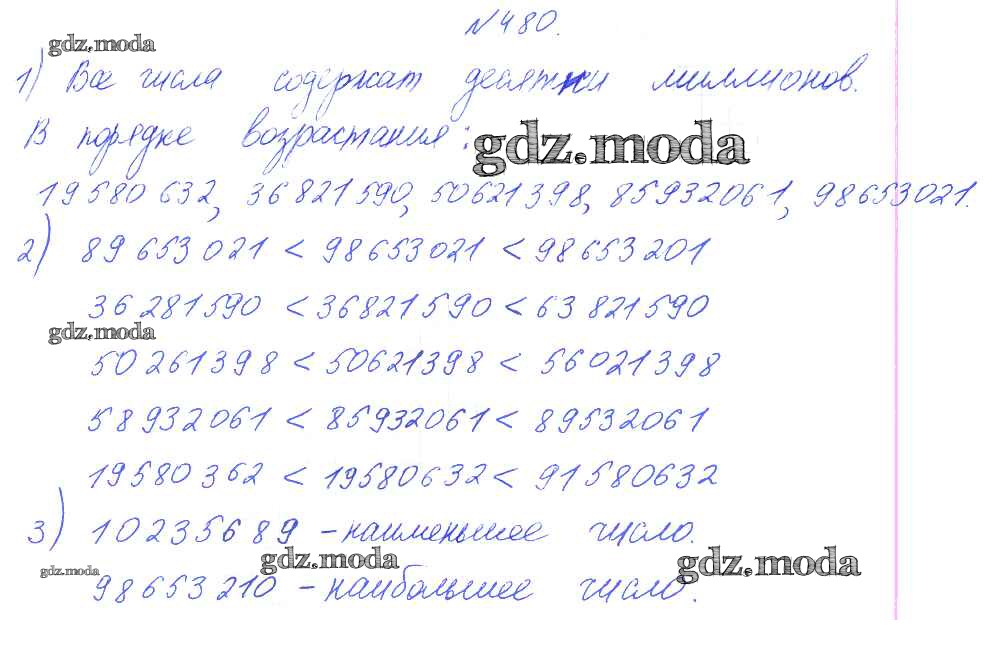 №480.
gdz.moda
1) Все числа содержат десятки миллионов.
В порядке возрастания:
gdz.moda
19580632, 36821590, 50621398, 85932061, 98653021.
2) 89653021 < 98653021 < 98653201
36281590 < 36821590 < 63821590
gdz.moda
50261398 < 50621398 < 56021398
58932061 < 85932061 < 89532061
19580362 < 19580632 < 91580632
3) 10235689 – наименьшее число.
gdz.moda
gdz.moda
gdz.moda
98653210 – наибольшее число.